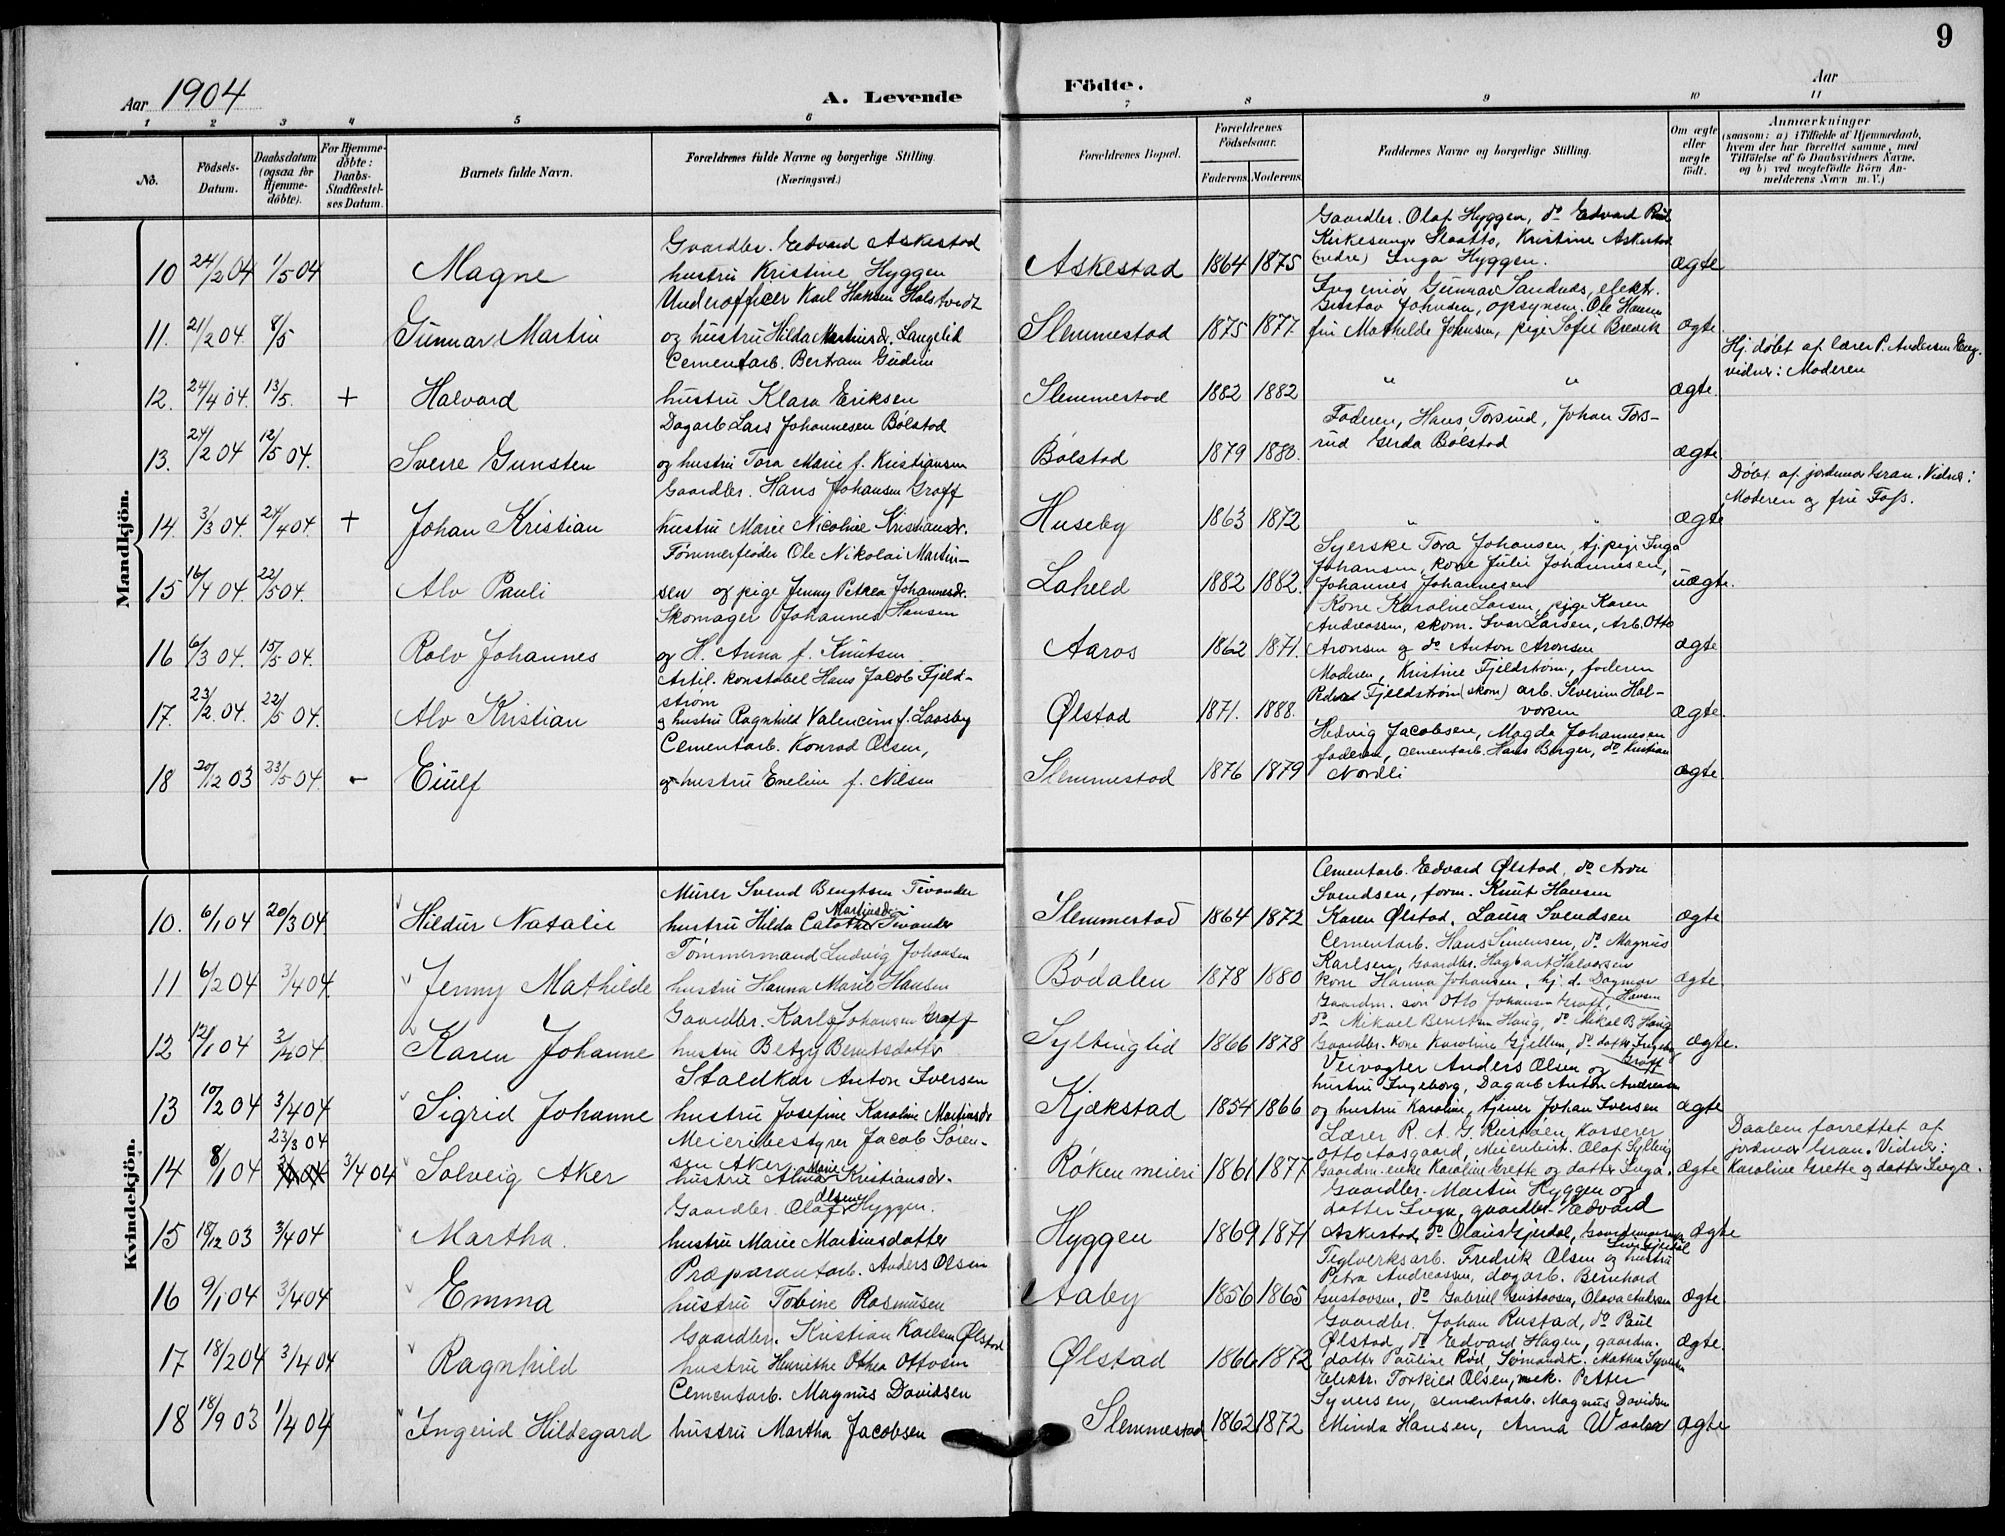 9
Aar 1904
A. Levende
Födte.
Aar
1 2 3 4 5 6 7 8 9 10 11
No.
Födsels-Datum.
Daabsdatum (ogsaa for Hjemme-döbte).
For Hjemme-döbte: Daabs-Stadfæstel-ses Datum.
Barnets fulde Navn.
Forældrenes fulde Navne og borgerlige Stilling. (Næringsvei.)
Forældrenes Bopæl.
Forældrenes Födselsaar.
Faderens. Moderens.
Faddernes Navne og borgerlige Stilling.
Om ægte eller uægte födt.
Anmærkninger
(saasom: a) i Tilfælde af Hjemmedaab, hvem der har forrettet samme, med Tilföielse af to Daabsvidners Navne, og b) ved uægtefödte Börn Anmelderens Navn m. V.)
Mandkjön.
10 24/2 04 1/5 04 Magne
Gaardbr. Edvard Askestad
hustru Kristine Hyggen
Askestad 1864 1875
Gaardbr. Olaf Hyggen, do Edvard
Kirkesanger Slaatto, Kristine Askestad
(nedre) Inga Hyggen.
ægte
11. 21/2 04. 8/5 Gunnar Martin
Underofficer Karl Hansen Holstvedt
og hustru Hilda Martinsdr. Langelid
Slemmestad 1875 1877.
Ingeniør Gunnar Sandnes, elektr.
Gustav Johnsen, opsynsm. Ole Hansen
fru Mathilde Johnsen, pige Sofie Brevik
ægte
12. 24/4 04. 13/5. + Halvard
Cementarb. Bertram Gudim
hustru Klara Eriksen
Slemmestad 1882 1882
" "
ægte.
Hj. døbt af lærer P. Andersen
vidner: Moderen
13. 24/2 04 12/5 04. Sverre Gunsten
Dagarb. Lars Johannesen Bølstad
og hustru Tora Marie f. Kristiansen
Bølstad 1879 1880.
Faderen, Hans Torsrud, Johan Tors-
rud Gerda Bølstad
ægte
14. 3/3 04. 24/4 04. + Johan Kristian
Gaardbr. Hans Johansen Graff
hustru Marie Nicoline Kristiansdr.
Huseby 1863 1872
" "
ægte
Døbt af jordmor Gran. Vidner:
Moderen og fru Foss.
15 16/4 04. 22/5 04. Alv Pauli
Tømmerfløder Ole Nikolai Martin-
sen og pige Jenny Petrea Johannesdr.
Laheld 1882 1882.
Syerske Tora Johansen, tj. pige Inga
Johansen, kone Julie Johannesen,
Johannes Johannesen
uægte.
16 6/3 04. 15/5 04. Rolv Johannes
Skomager Johannes Hansen
og H. Anna f. Knutsen
Aaros 1862 1871.
Kone Karoline Larsen, pige Karen
Andreassen, skom. Ivar Larsen, Arb. Otto
Aronsen og do Anton Aronsen
ægte
17. 23/2 04. 22/5 04. Alv Kristian
Artil. konstabel Hans Jacob Fjeld-
strøm
og hustru Ragnhild Valencim f. Laasby
Ølstad 1871. 1888.
Moderen, Kristine Fjeldstrøm, faderen
Fjeldstrøm (skom) arb. Severin Hal-
vorsen
ægte.
18 20/12 03 23/5 04. - Eiulf
Cementarb. Konrad Olsen,
og hustru Emeline f. Nilsen
Slemmestad 1876 1879
Hedvig Jacobsen, Magda Johannesen
faderen, cementarb. Hans Berger, do Kristian
Nordli
ægte.
Kvindekjön.
10. 6/1 04 20/3 04. Hildur Natalie
Murer Svend Bengtsen Tivander
Martinsdr.
hustru Hilda Tivander
Slemmestad 1864 1872
Cementarb. Edvard Ølstad, do Aron
Svendsen, form. Knut Hansen
Karen Ølstad, Laura Svendsen
ægte
11 6/2 04 3/4 04. Jenny Mathilde
Tømmermand Ludvig Johansen
hustru Hanna Marie Hansen
Bødalen 1878 1880
Cementarb. Hans Simensen, do Magnus
Karlsen, Gaardbr. Hagbart Halversen
kone Hanna Johansen, hj. d. Dagmar
Hansen
ægte.
12 12/1 04 3/4 04 Karen Johanne
Gaardbr. Karl Johansen Graff
hustru Betzy Berntsdatter
Syltinglid 1866 1878
Gaardm. søn Otto Johansen Graff,
do Mikael Berntsen Haug, do Mikal B. Haug
Gaardbr. kone Karoline Gjellum, do datter Ingeborg
Graff
ægte.
13 10/2 04 3/4 04 Sigrid Johanne
Staldkar Anton Iversen
hustru Josefine Karoline Martinsdr
Kjækstad 1854 1866
Veivogter Anders Olsen og
hustru Ingeborg, Dagarb. Anton Andresen
og hustru Karoline, tjener Johan Iversen
ægte
14 8/1 04 23/3 04 3/4 04 Solveig Aker
Meieribestyrer Jacob Søren-
sen Aker
hustru Alma Marie Kristiansdr.
Røken meieri 1861 1877
Lærer R. A. G. Rustøen, kasserer
Otto Aasgaard, Meieribest. Olaf Sylling
Gaardm. enke Karoline Grette og datter Inga.
ægte
Daaben forrettet af
jordmor Gran. Vidner:
Karoline Grette og datter Inga.
15 18/12 03 3/4 04 Martha.
Gaardbr. Olaf Olsen Hyggen.
hustru Marie Martinsdatter
Hyggen 1869 1871
Gaardbr. Martin Hyggen og
datter Inga, gaardbr. Edvard
Askestad, do Olaus Gjerdal,
ægte
16 9/1 04 3/4 04 Emma
Præparantarb. Anders Olsen
hustru Tobine Rasmusen
Aaby 1856 1865
Teglverksarb. Fredrik Olsen og hustru
Petra Andreassen, dagarb. Bernhard
Gustavsen, do Gabriel Gustavsen, Olava Andersen
ægte
17 18/2 04 3/4 04 Ragnhild
Gaardbr. Kristian Karlsen Ølstad
hustru Henriette Othea Ottosen
Ølstad 1866 1872
Gaardbr. Johan Rustad, do Paul
Ølstad, do Edvard Hagen, gaardm.
datter Pauline Rød, Sømandsk. Mathea Syversen
ægte.
18 18/9 03 1/4 04 Ingerid Hildegard
Cementarb. Magnus Davidsen
hustru Martha Jacobsen
Slemmestad. 1862 1872
Elektr. Torkild Olsen, mek. Petter
Syversen, cementarb. Magnus Davidsen
Minda Hansen, Anna Waaler
ægte